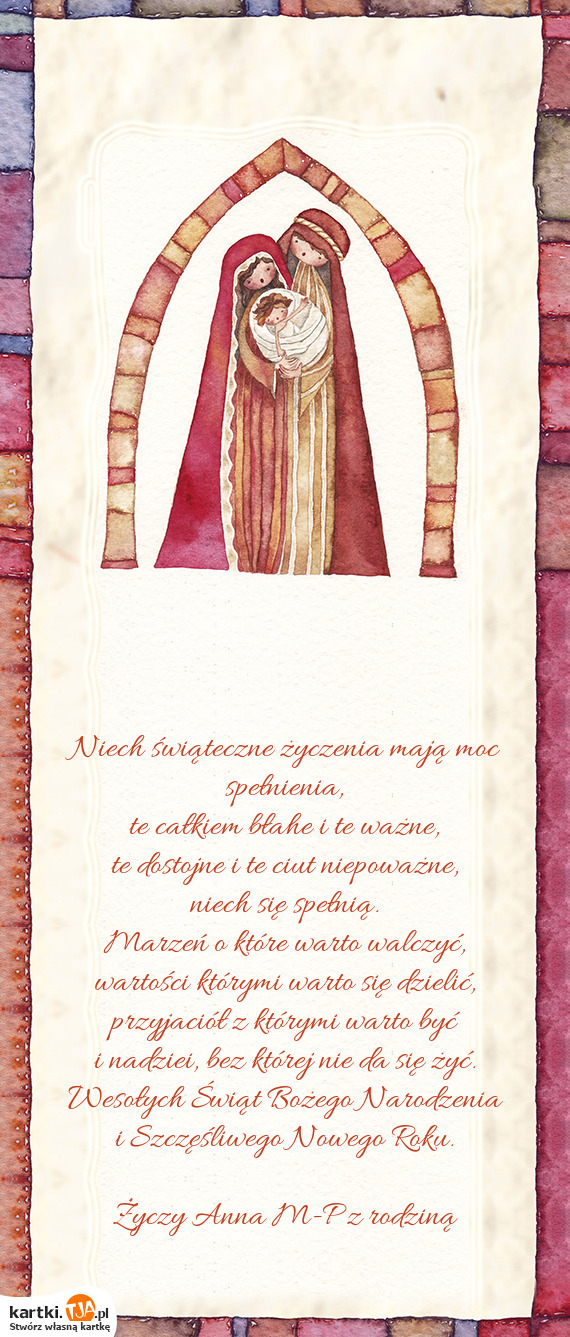 Niech świąteczne życzenia mają moc
spełnienia,
te całkiem błahe i te ważne,
te dostojne i te ciut niepoważne,
niech się spełnią.
Marzeń o które warto walczyć,
wartości którymi warto się dzielić,
przyjaciół z którymi warto być
i nadziei, bez której nie da się żyć.
Wesołych Świąt Bożego Narodzenia
i Szczęśliwego Nowego Roku.
Życzy Anna M-P z rodziną
kartki.TJA.pl
Stwórz własną kartkę